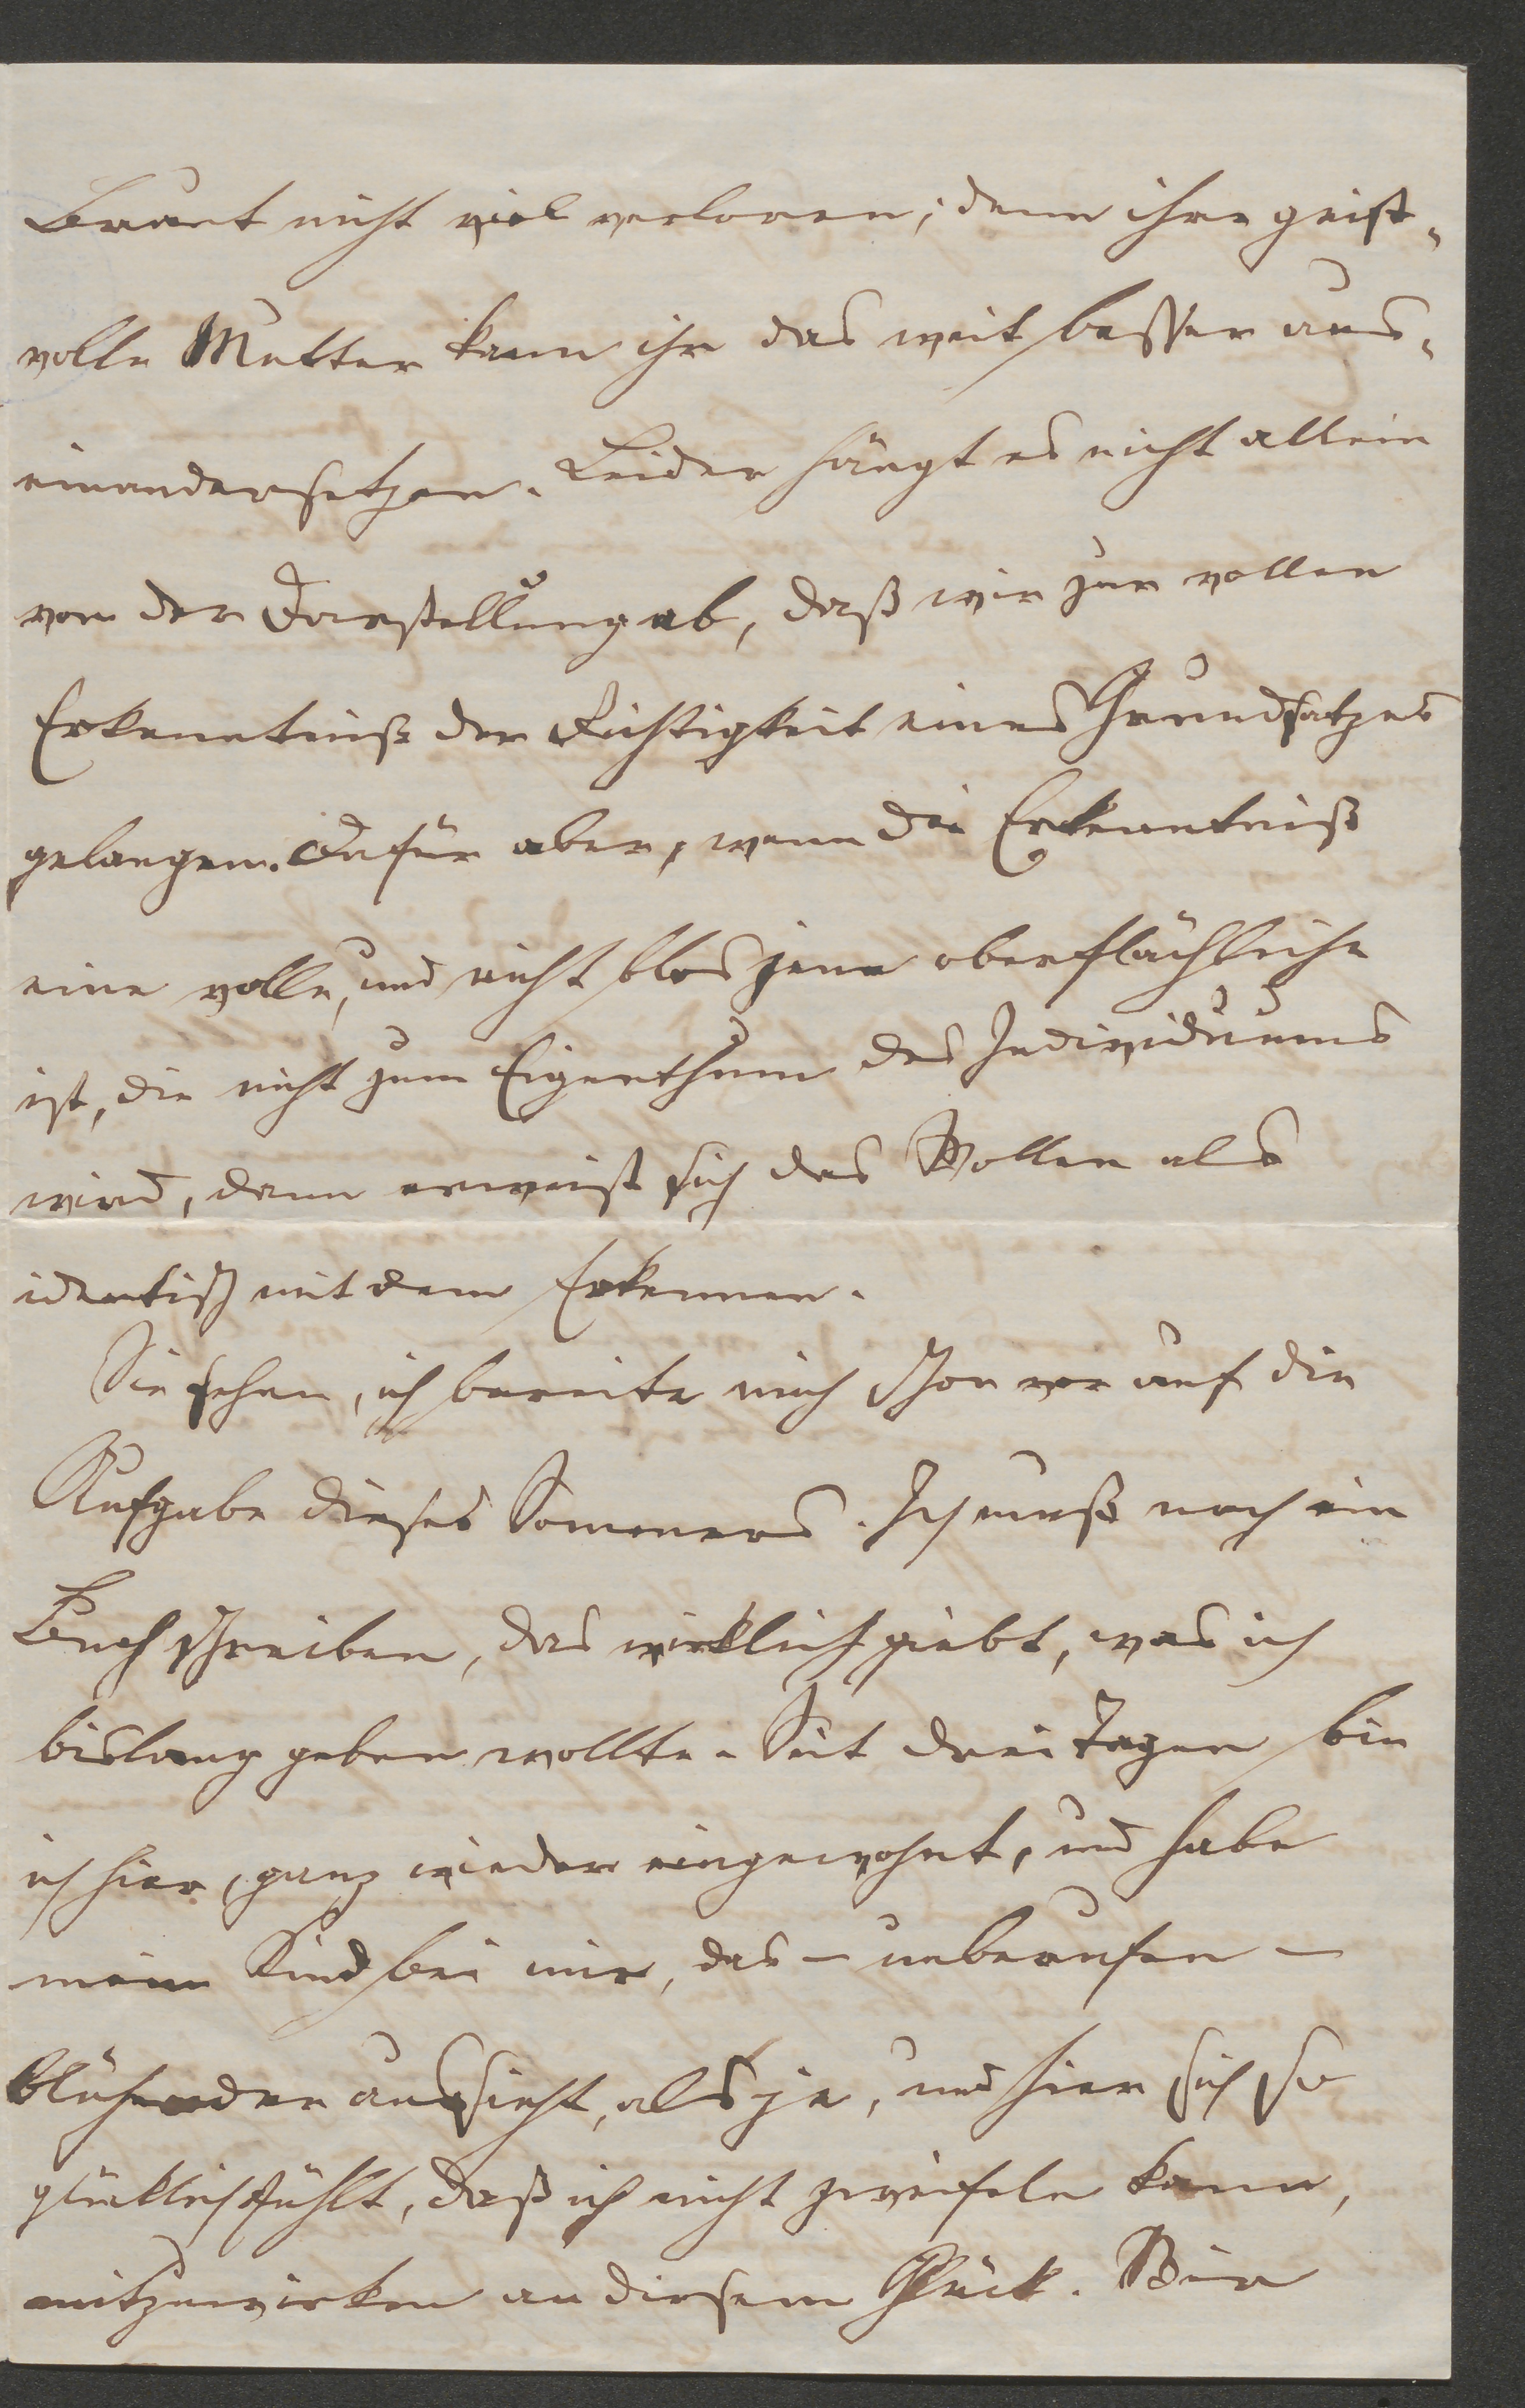 Braut nicht viel verloren; denn ihre geist-
volle Mutter kann ihr das weit besser aus-
einandersetzen. Leider hängt es nicht allein
von der Darstellung ab, daß wir zur vollen
Erkenntniß der Richtigkeit eines Grundsatzes
gelangen. Dafür aber, wenn die Erkenntniß
eine volle, und nicht blos jene oberflächliche
ist, die nicht zum Eigenthum des Individuums
wird, dann erweist sich das Wollen als
identisch mit dem Erkennen.
Sie sehen, ich bereite mich schon vor auf die
Aufgabe dieses Sommers. Ich muß noch ein
Buch schreiben, das wirklich giebt, was ich
bislang geben wollte. Seit drei Tagen bin
ich hier, ganz wieder eingewohnt, und habe
mein Kind bei mir, das – unberufen –
blühender aussieht, als je, und hier sich so
glücklich fühlt, daß ich nicht zweifeln kann,
mitzuwirken an diesem Glück. Wir